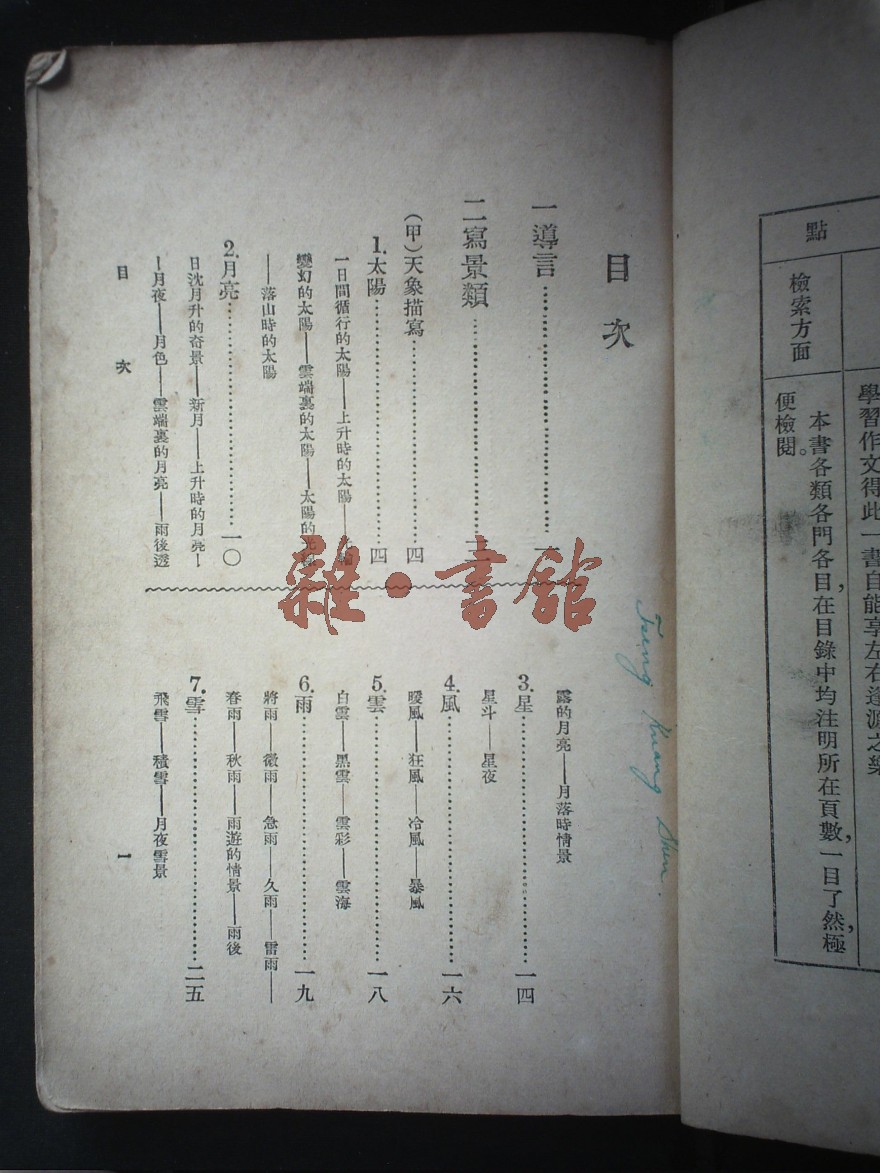 點
檢索方面
學習作文得此一書自能享左右逢源之樂
本書各類各門各目在目錄中均注明所在頁數，一目了然，極
便檢閱。
目次
一 導言……一
二 寫景類……三
（甲）天象描寫……四
1. 太陽……四
一日間循行的太陽——上升時的太陽——
變幻的太陽——雲端裏的太陽——太陽的光
——落山時的太陽
2. 月亮……一〇
日沈月升的奇景——新月——上升時的月亮—
—月夜——月色——雲端裏的月亮——雨後透
露的月亮——月落時情景
3. 星……一四
星斗——星夜
4. 風……一六
暖風——狂風——冷風——暴風
5. 雲……一八
白雲——黑雲——雲彩——雲海
6. 雨……一九
將雨——微雨——急雨——久雨——雷雨——
春雨——秋雨——雨遊的情景——雨後
7. 雪……二五
飛雪——積雪——月夜雪景
目次
一
Tseng Kuang Shen.
雜·書館